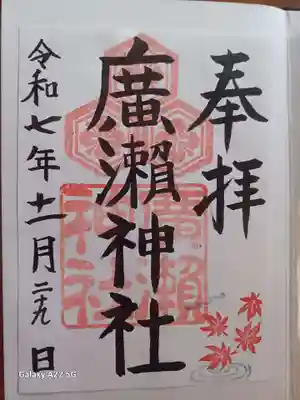 奉拝
廣瀨神社
廣瀨
神社
令和七年十一月二十九日
Galaxy A22 5G